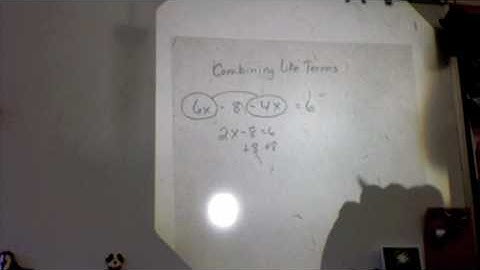 Combining Like Terms
6x - 8 - 4x = 6
2x - 8 = 6
+8 +8